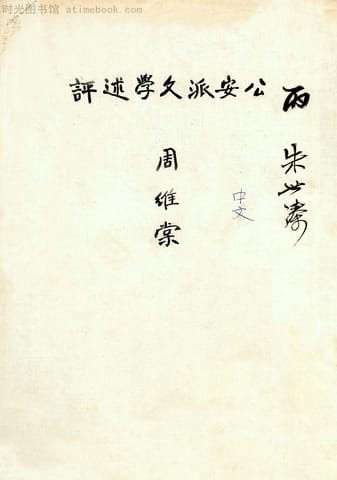 时光图书馆 - atimebook.com
公安派文學述評
丙
朱世溱
中文
周維棠